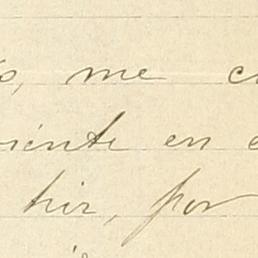 o, me c
iente en c
tir, por